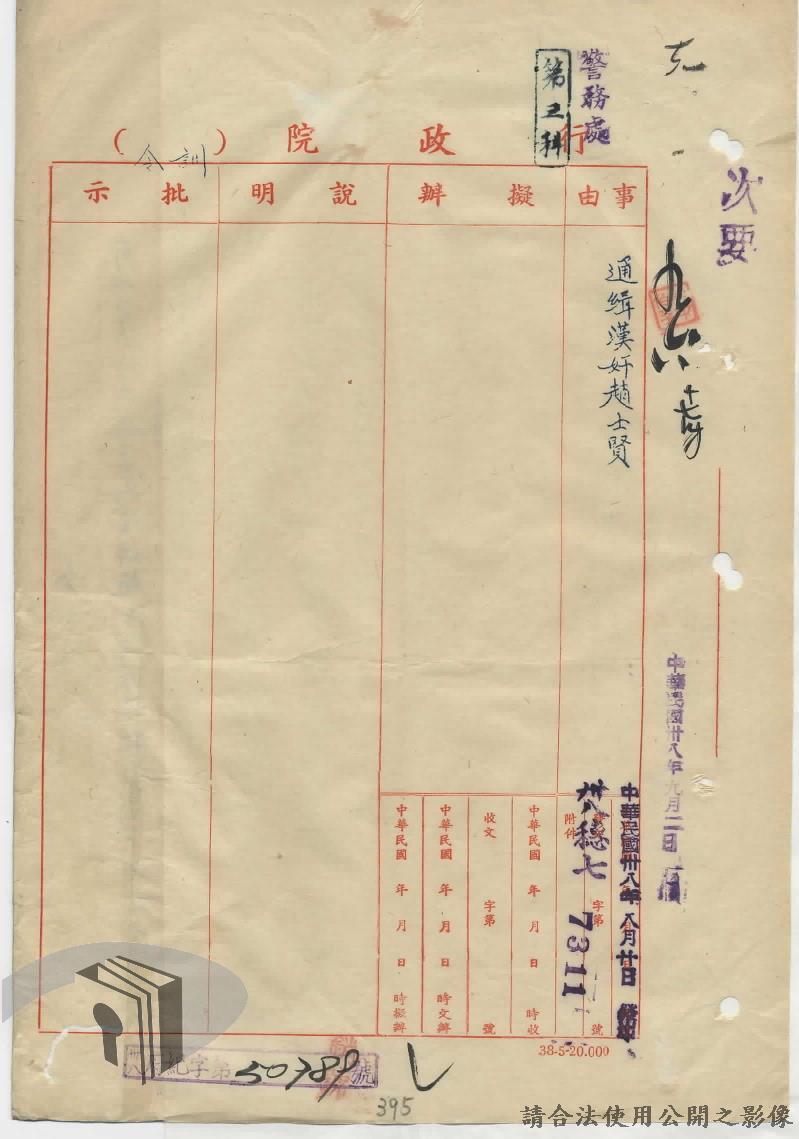 次要
警務處
第五科
行政院（訓令）
事由
擬辦
說明
批示
通緝漢奸趙士賢
中華民國卅八年九月二日
中華民國卅八年八月廿日
字第 號
卅八穗七 7311
附件
中華民國 年 月 日 時收
收文 字第 號
中華民國 年 月 日 時交辦
中華民國 年 月 日 時擬辦
38-5-20.000
紀字第50789號
395
請合法使用公開之影像